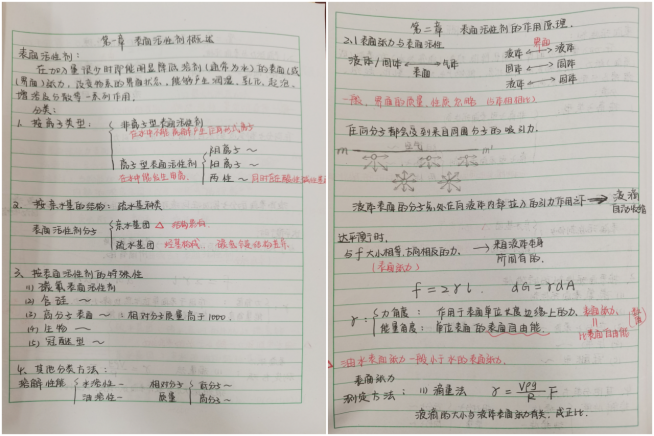 第一章 表面活性剂概述
表面活性剂：
在加入量很少时即能明显降低溶剂(通常为水)的表面(或
(界面)张力，改变物系的界面状态，能够产生润湿、乳化、起泡、
增溶及分散等一系列作用。
分类：
1. 按离子类型：
非离子型表面活性剂
在水中不能
离子型表面活性剂
阴离子～
阳离子～
两性～
2. 按亲水基的结构：疏水基种类
表面活性剂分子
亲水基团
疏水基团
3. 按表面活性剂的特殊性
(1) 碳氟表面活性剂
(2) 含硅～
(3) 高分子表面～：相对分子质量高于1000
(4) 生物～
(5) 冠醚型～
4. 其他分类方法：
溶解性能
水溶性～
油溶性～
相对分子
质量
高分子～
低分子～
第二章 表面活性剂的作用原理.
2.1 表面张力与表面活性
界面
液体/固体 ⟷ 气体
表面
液体 ⟷ 液体
固体 ⟷ 固体
固体 ⟷ 液体
一般，界面的质量、性质忽略
任何分子都会受到来自周围分子的吸引力.
空气
m
m'
液体表面的分子始终处在向液体内部拉入的引力作用之下 ⟹ 液滴
自动收缩
达平衡时，
与f大小相等，方向相反的力，→ 来自液体本身
所固有的.
(表面张力)
f=2γl. dG=γdA
γ：
力角度：作用于表面单位长度边缘上的力. 表面张力
能量角度：单位表面的表面自由能. 比表面自由能
(数
△ 油水表面张力一般小于水的表面张力.
表面张力
测定方法：(1) 滴重法 γ=Vρg/R F
液滴的大小与液体表面张力有关，成正比.